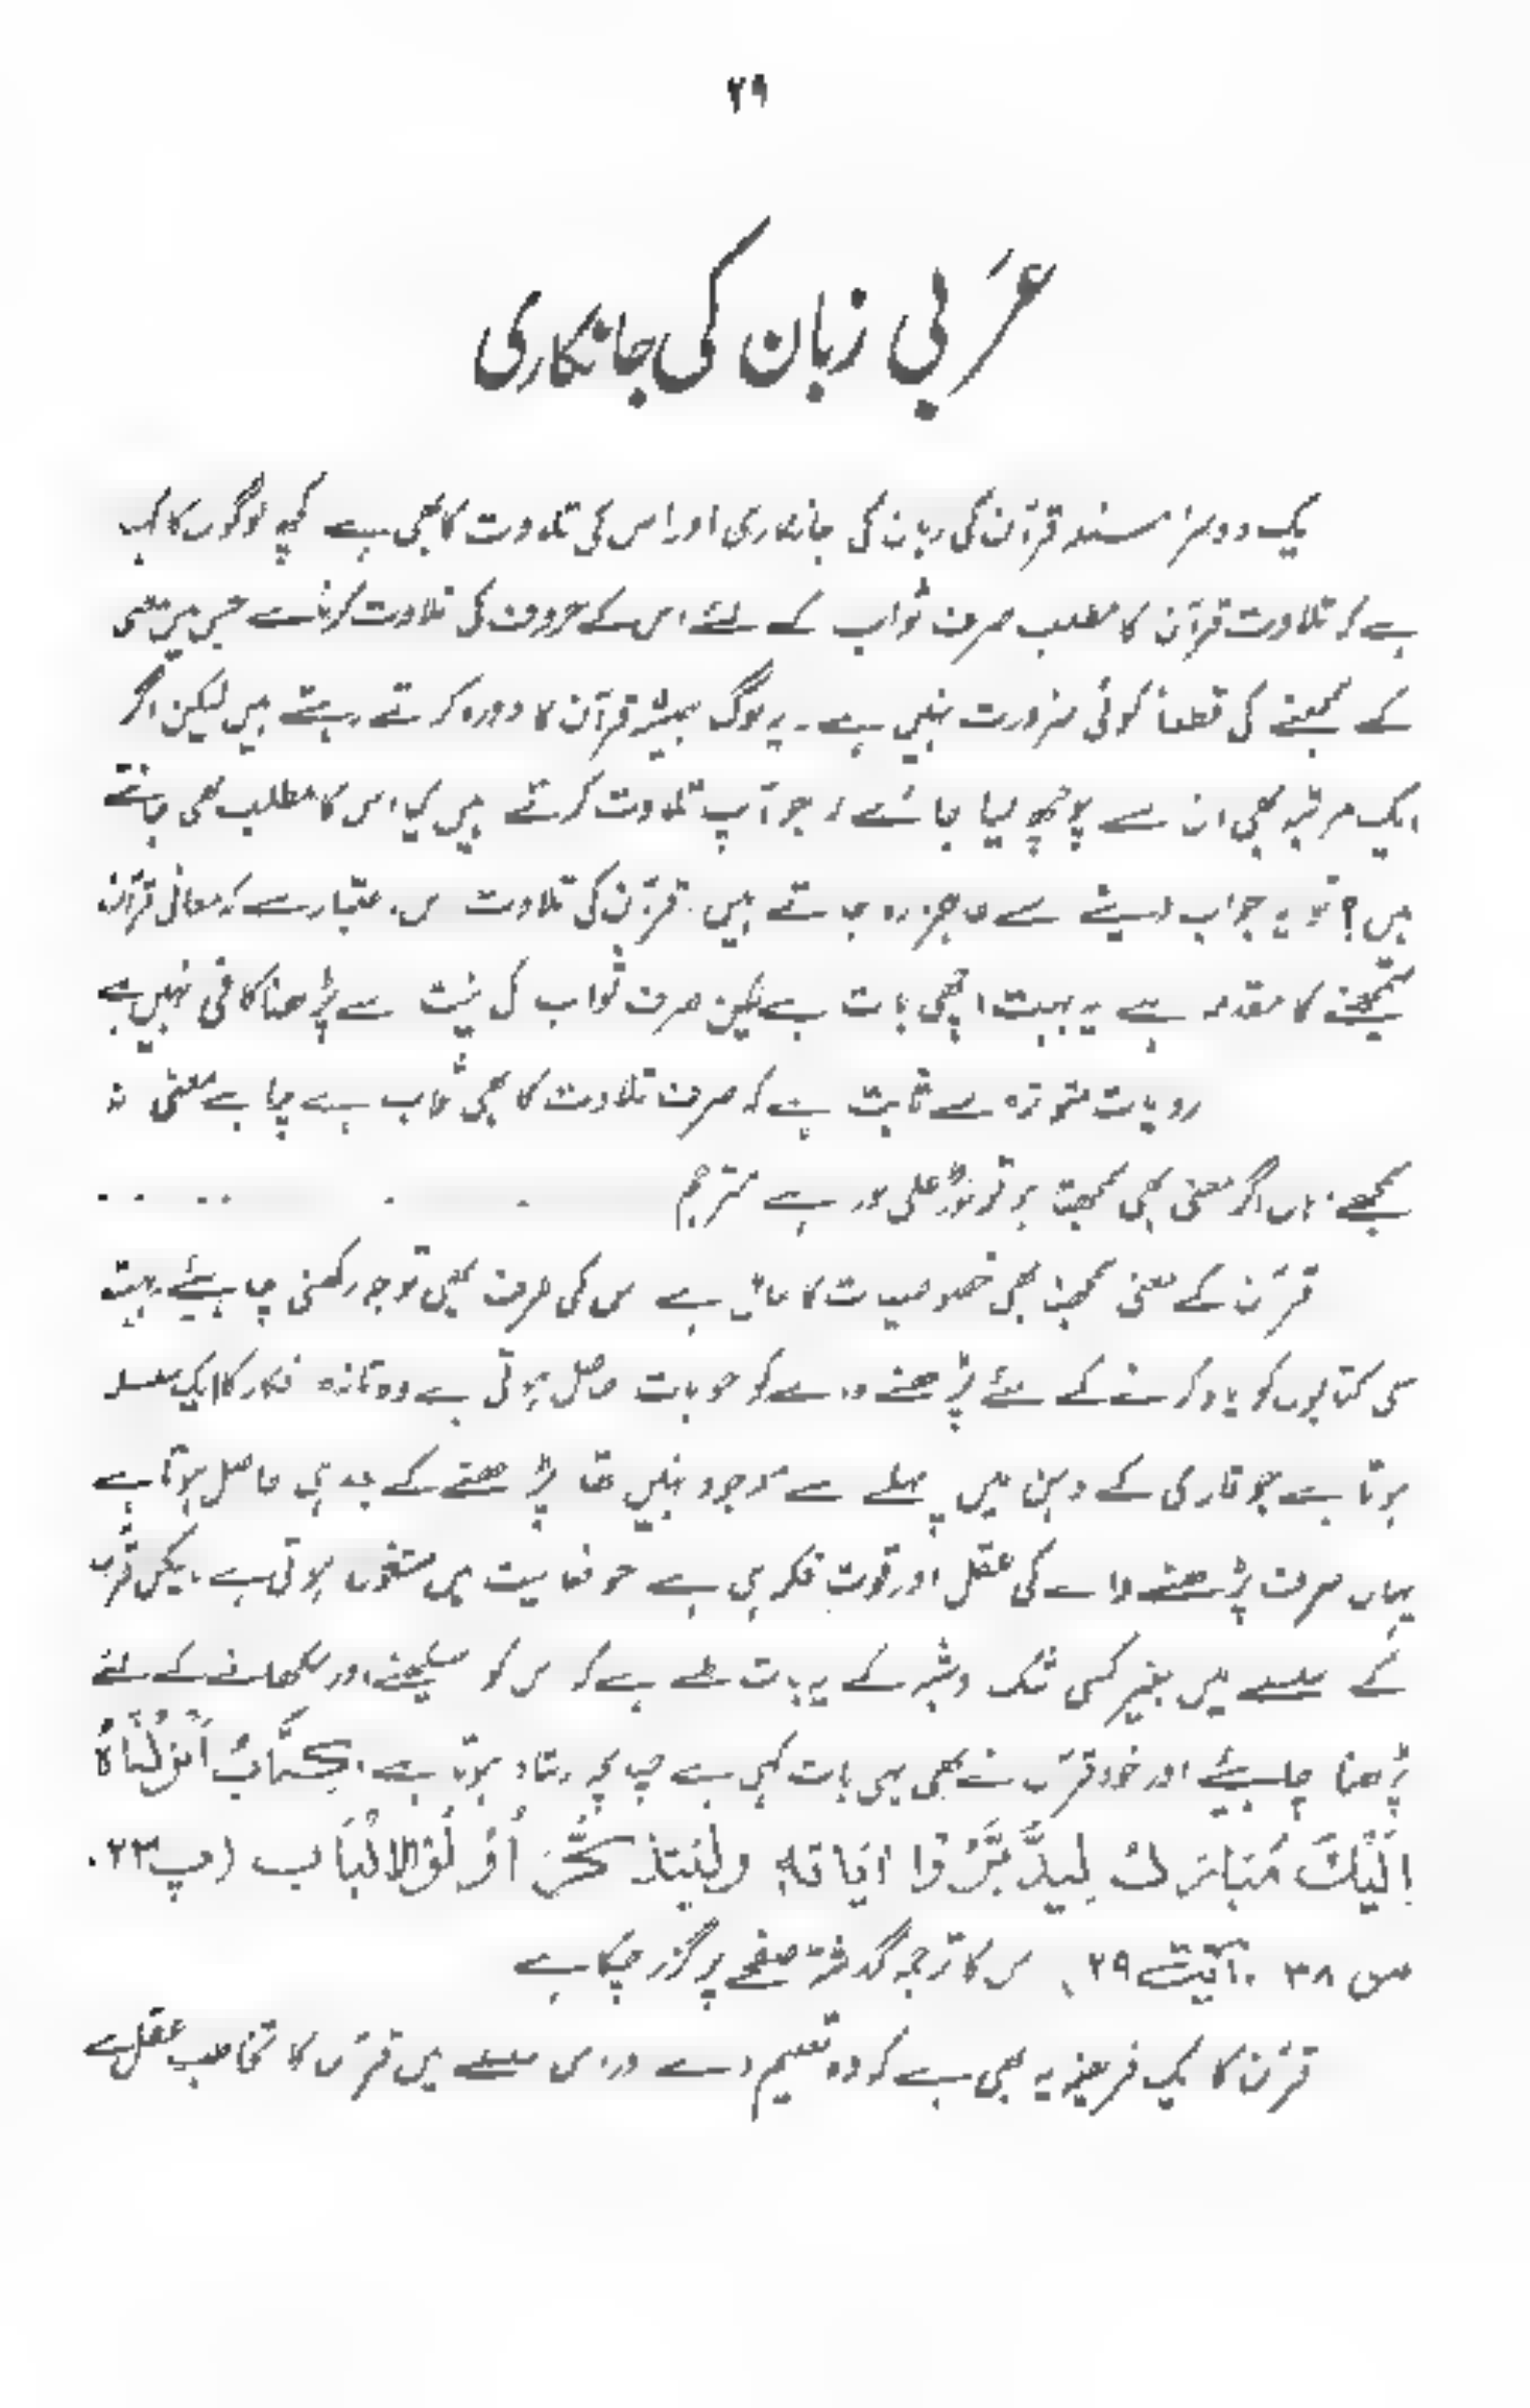 ۲۹
عَربی زبان کی جانکاری
ایک دوسرا مسئلہ قرآن کی زبان کی جانکاری اور اس کی تلاوت کا بھی ہے کچھ لوگوں کا کہنا
ہے کہ تلاوت قرآن کا مطلب صرف ثواب کے لئے اس کے حروف کی تلاوت کرنا ہے جس میں معنی
کے سمجھنے کی قطعاً کوئی ضرورت نہیں ہے ۔ یہ لوگ ہمیشہ قرآن کا دورہ کرتے رہتے ہیں لیکن اگر
ایک مرتبہ بھی ان سے پوچھ لیا جائے کہ جو آپ تلاوت کرتے ہیں کیا اس کا مطلب بھی جانتے
ہیں ؟ تو یہ جواب دینے سے عاجز رہ جاتے ہیں ۔ قرآن کی تلاوت اس اعتبار سے کہ معانی قرآن
سمجھنے کا مقدمہ ہے یہ بہت اچھی بات ہے لیکن صرف ثواب کی نیت سے پڑھنا کافی نہیں ہے
روایات متواترہ سے ثابت ہے کہ صرف تلاوت کا بھی ثواب ہے چاہے معنی نہ
سمجھے ۔ ہاں اگر معنی بھی سمجھتا ہو تو نورٌ علی نور ہے مترجم
قرآن کے معنی سمجھنا بھی خصوصیات کا حامل ہے اس کی طرف بھی توجہ رکھنی چاہیئے ۔ بہت
سی کتابوں کو یاد کرنے کے لئے پڑھنے والے کو جو بات حاصل ہوتی ہے وہ تازہ افکار کا ایک سلسلہ
ہوتا ہے جو قاری کے ذہن میں پہلے سے موجود نہیں تھا پڑھنے کے بعد ہی حاصل ہوتا ہے
یہاں صرف پڑھنے والے کی عقل اور قوت فکر ہی ہے جو فعالیت میں مشغول ہوتی ہے ۔ لیکن قرآن
کے سلسلے میں بغیر کسی شک و شبہ کے یہ بات طے ہے کہ اس کو سیکھنے اور سکھانے کے لئے
پڑھنا چاہیئے اور خود قرآن نے بھی یہی بات کہی ہے چنانچہ ارشاد ہوتا ہے ۔ كِتَابٌ أَنزَلْنَاهُ
إِلَيْكَ مُبَارَكٌ لِيَدَّبَّرُوا آيَاتِهِ وَلِيَتَذَكَّرَ أُوْلُوْ الْأَلْبَاب (پ ۲۳ .
ص ۳۸ . آیت ۲۹) اس کا ترجمہ گذشتہ صفحے پر گزر چکا ہے
قرآن کا ایک فریضہ یہ بھی ہے کہ وہ تعلیم دے اور اس سلسلے میں قرآن کا تخاطب عقل سے